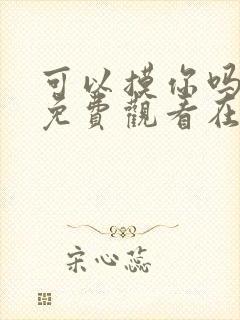 可以摸你吗
免費觀看在
宋心蕊